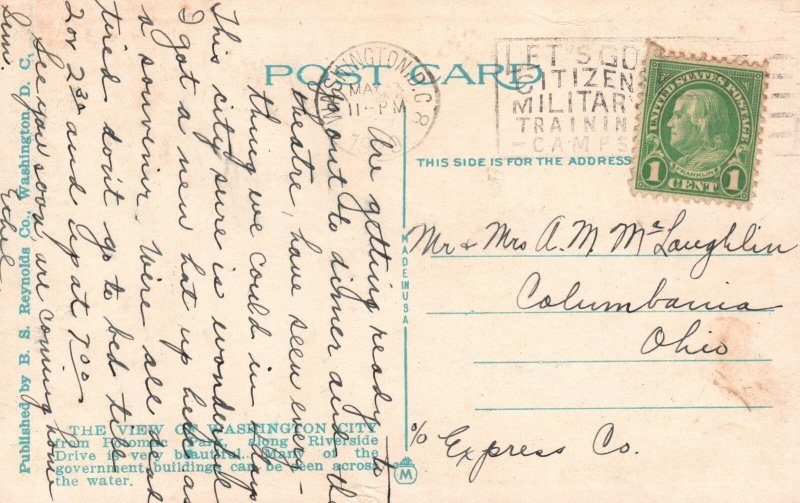 POST CARD
WASHINGTON, D.C. 8
MAY
11-PM
LET'S GO
CITIZEN
MILITARY
TRAININ
-CAMPS
UNITED STATES POSTAGE
FRANKLIN
1 CENT 1
THIS SIDE IS FOR THE ADDRESS
Mr & Mrs A. M McLaughlin
Columbiana
Ohio
c/o Express Co.
MADE IN USA
M
Are getting ready to
go out to dinner and the
theatre, have seen every-
thing we could in days
This city sure is wonderful
I got a new hat up here as
a souvenir. Were all dead
tired don't go to bed till
2 or 2 30 and up at 7 00
See you soon are coming home
Sun.
Ethel
THE VIEW OF WASHINGTON CITY
from Potomac Park, along Riverside
Drive is very beautiful. Many of the
government buildings can be seen across
the water.
Published by B. S. Reynolds Co., Washington, D. C.